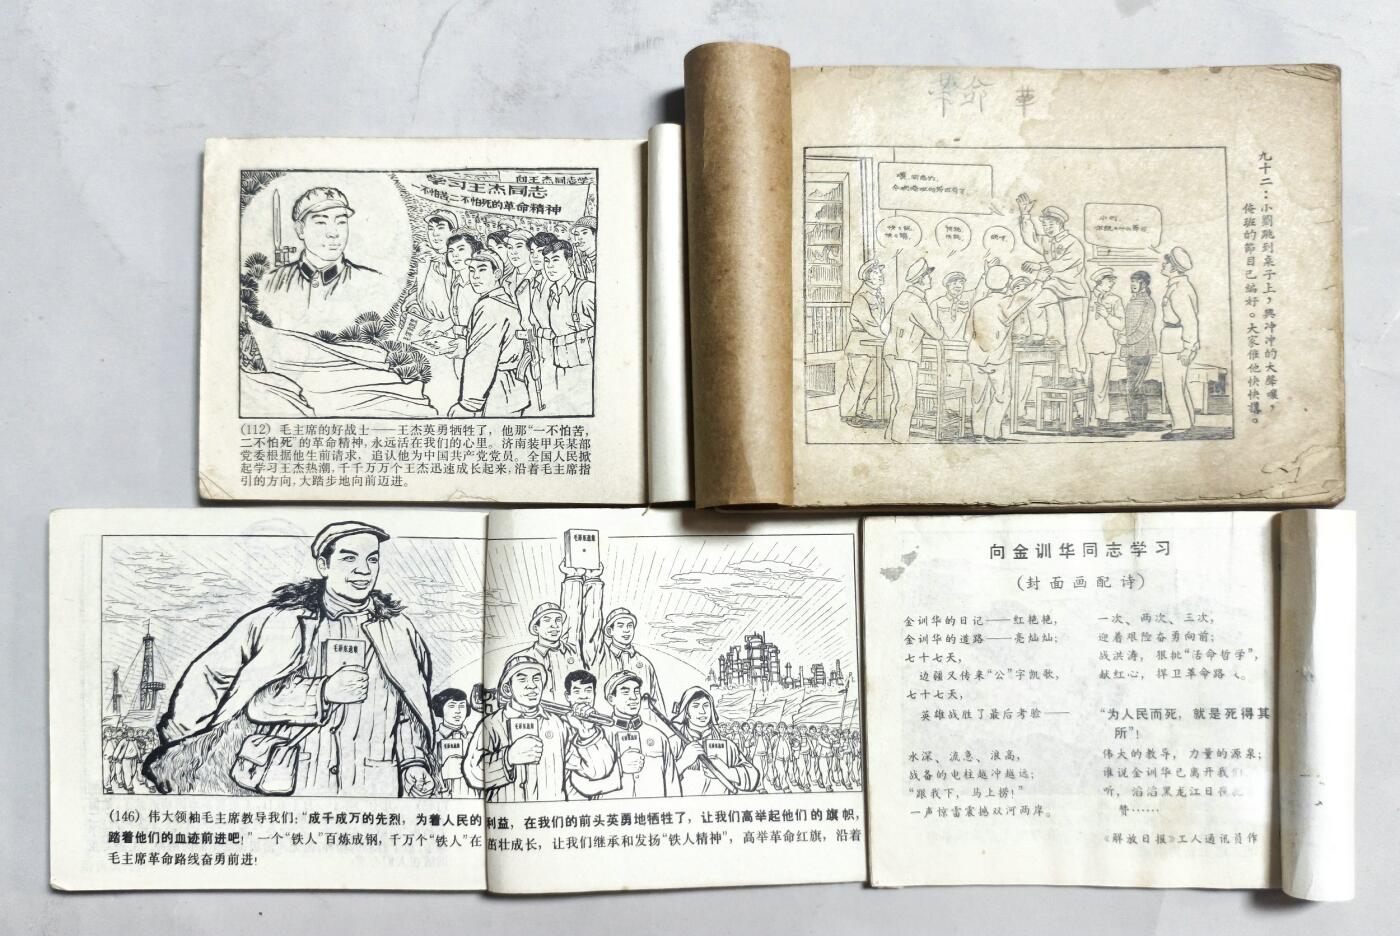 向王杰同志学
学习王杰同志
一不怕苦二不怕死的革命精神
(112) 毛主席的好战士——王杰英勇牺牲了，他那“一不怕苦，
二不怕死”的革命精神，永远活在我们的心里。济南装甲兵某部
党委根据他生前请求，追认他为中国共产党党员。全国人民掀
起学习王杰热潮，千千万万个王杰迅速成长起来，沿着毛主席指
引的方向，大踏步地向前迈进。
革命 革
九十二：小劉跳到桌子上，興冲冲的大聲嚷，
俺班的節目已編好。大家催他快快講。
毛泽东选集
毛泽东选集
毛泽东选集
毛泽东选集
毛泽东选集
毛泽东选集
(146) 伟大领袖毛主席教导我们：“成千成万的先烈，为着人民的利益，在我们的前头英勇地牺牲了，让我们高举起他们的旗帜，
踏着他们的血迹前进吧！”一个“铁人”百炼成钢，千万个“铁人”在茁壮成长，让我们继承和发扬“铁人精神”，高举革命红旗，沿着
毛主席革命路线奋勇前进！
向金训华同志学习
（封面画配诗）
金训华的日记——红艳艳，
金训华的道路——亮灿灿；
七十七天，
边疆又传来“公”字凯歌，
七十七天，
英雄战胜了最后考验——
水深、流急、浪高，
战备的电柱越冲越远；
“跟我下，马上捞！”
一声惊雷震撼双河两岸。
一次、两次、三次，
迎着艰险奋勇向前；
战洪涛，狠批“活命哲学”，
献红心，捍卫革命路
“为人民而死，就是死得其
所”！
伟大的教导，力量的源泉；
谁说金训华已离开我们
听，滔滔黑龙江日夜
赞……
《解放日报》工人通讯员作